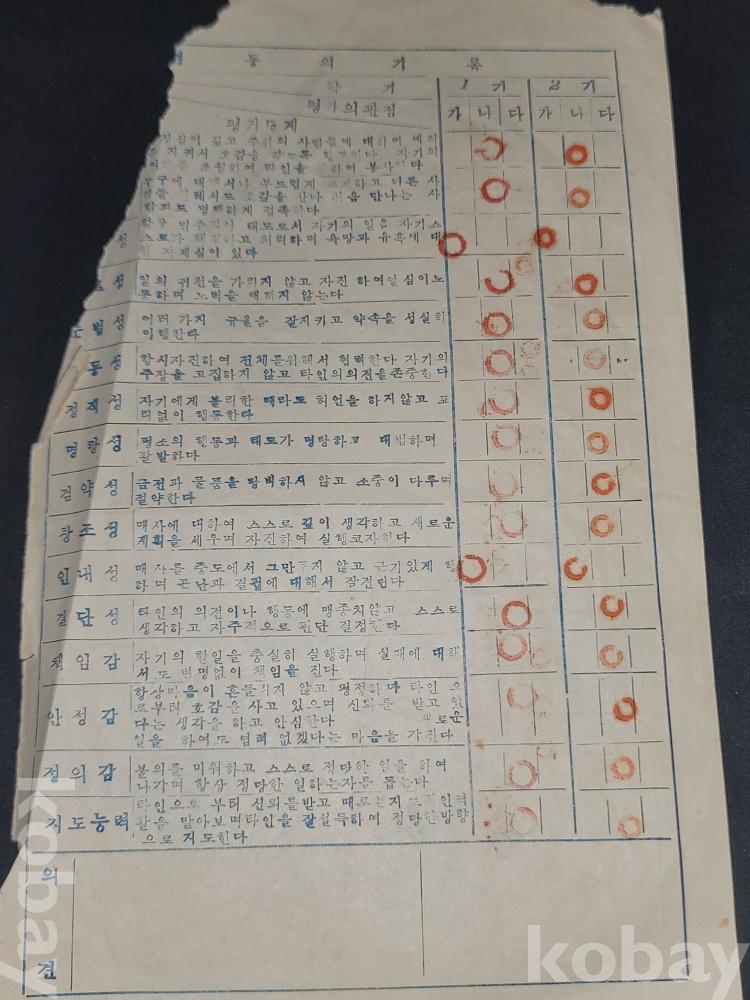 동 의 기 록
학 기
평가의관점
평가단계
1 기 2 기
가 나 다 가 나 다
깊고 주위의 사람들에 대하여 예의
지켜서 호감을 자기의
타인을 위하여
부드럽게 하고 다른 사
호감을 산다 처음 만나는 사
람과도 명쾌하게 접촉한다
항상 태도로서 자기의 일을 자기스
성 스로가 해결하고 처리하며 욕망과 유혹에 대
한 자제심이 있다
성 일의 귀천을 가리지 않고 자진 하여열심이노
동하며 노력을 애끼지 않는다
법성 여러 가지 규율을 잘지키고 약속을 성실히
이행한다
동성 항시자진하여 전체를위해서 협력한다 자기의
주장을 고집하지 않고 타인의의견을존중한다
정직성 자기에게 불리한 때라도 허언을 하지않고 표
리없이 행동한다
명랑성 평소의 행동과 태도가 명랑하고 대범하며
활발하다
검약성 금전과 물품을 낭비하지 않고 소중이 다루며
절약한다
창조성 매사에 대하여 스스로 깊이 생각하고 새로운
계획을 세우며 자진하여 실행코자한다
인내성 매사를 중도에서 그만두지 않고 근기있게 행
하며 곤난과 결핍에 대해서 잘견딘다
결단성 타인의 의견이나 행동에 맹종치않고 스스로
생각하고 자주적으로 판단 결정한다
책임감 자기의 할일을 충실히 실행하며 실패에 대해
서도 변명없이 책임을 진다
안정감 항상마음이 흔들리지 않고 평정하다 타인 으
로부터 호감을 사고 있으며 신뢰를 받고 있
다는 생각을 하고 안심한다 새로운
일을 하여도 염려 없겠다는 마음을 가진다
정의감 불의를 미워하고 스스로 정당한 일을 하여
나가며 항상 정당한 일하는자를 돕는다
지도능력 타인으로 부터 신뢰를받고 때로는지도적인역
활을 맡아보며타인을 잘설득하여 정당한방향
으로 지도한다
의
견
kobay
kobay